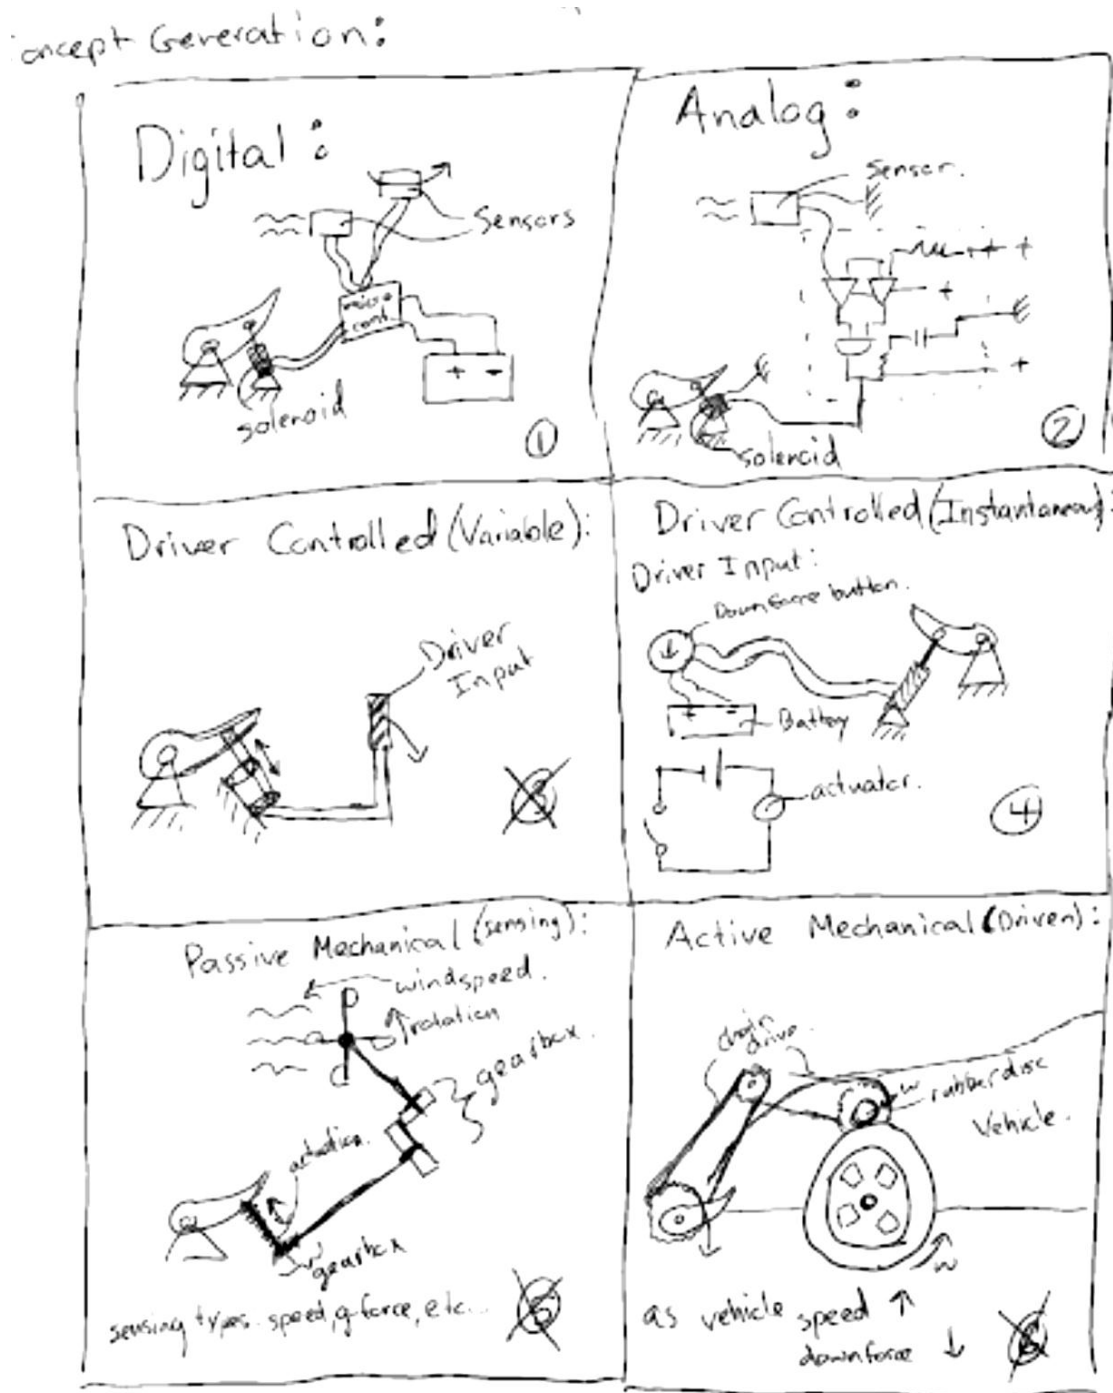 oncept Generation:
Digital:
Sensors
micro
cont.
+ -
solenoid
1
Analog:
Sensor.
+
+
+
solenoid
2
Driver Controlled (Variable):
Driver
Input
3
Driver Controlled (Instantaneous):
Driver Input:
Downforce button.
+ -
Battery
actuator.
4
Passive Mechanical (sensing):
windspeed.
rotation
gearbox.
actuation.
gearbox
sensing types. speed, g-force, etc...
5
Active Mechanical (Driven):
chain
drive.
w
rubber disc
Vehicle.
w
as vehicle speed ↑
downforce ↓
6